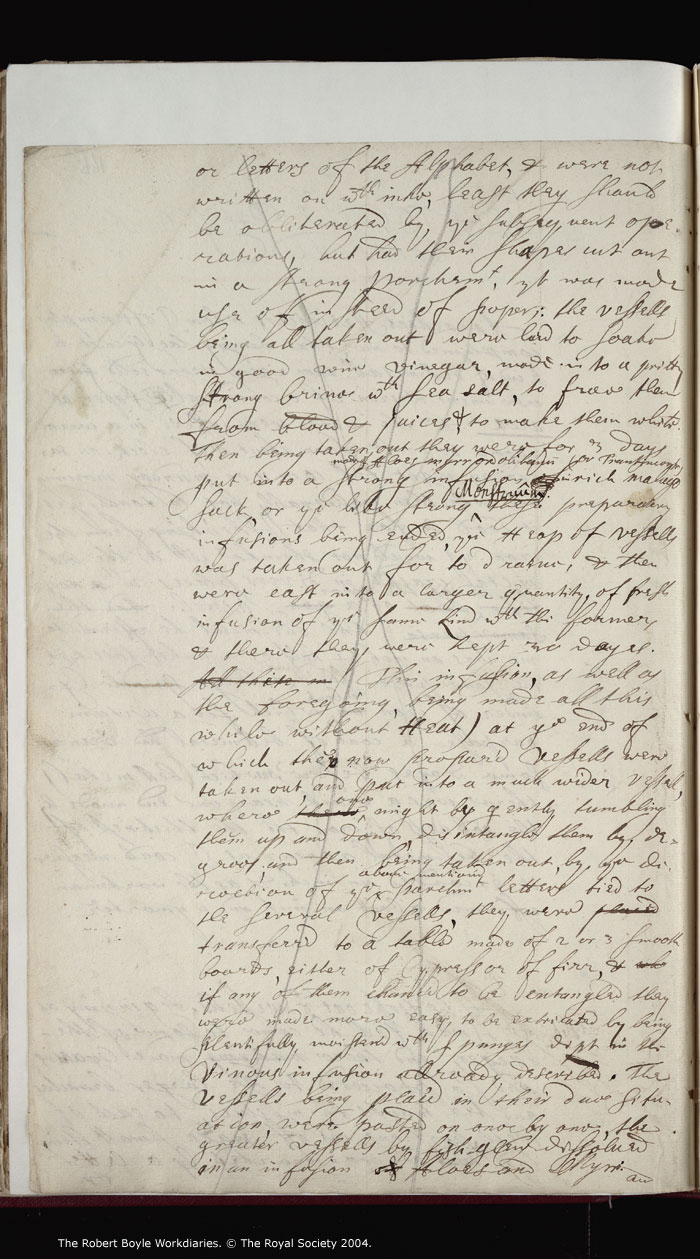 or letters of the Alphabet, & were not
written on wth inke, least they should
be obliterated by ye subsequent ope-
rations, but had their shapes cut out
in a strong Parchemt, yt was made
use of in steed of paper: the vessells
being all taken out were laid to soake
in good wine vinegar, made into a pritty
strong brine wth Sea salt, to free them
from blood & juices & to make them white.
Then being taken out they were for 3 days
Aloes myrrh olibanum
put into a strong infusion
Menstruum
such or ye like strong these preparatory
infusions being ended, ye Heap of vessells
was taken out for to draine, & then
were cast into a larger quantity of fresh
infusion of ye same kind wth the former
& there they were kept 30 dayes.
All this in This infusion, as well as
the foregoing being made all this
while without Heat) at ye end of
which the now prepard Vessells were
taken out, and put into a much wider vessel,
one
where might by gently tumbling
them up and down, disintangle them by de-
grees, and then being taken out, by ye di-
above mentiond
rection of ye Parchmt letters tied to
the severall Vessells, they were placed
transferrd to a table made of 2 or 3 smooth
boards, either of Cypress or of firr, & who
if any of them chancd to be entangled they
were made more easy to be extricated by being
plentifully moistend wth spunges dipt in the
Vinous infusion already described. The
Vessells being placd in their due situ-
ation, were pasted on one by one, the
greater vessells by fish glew dissolved
in an infusion of Aloes and Myrrh
and
The Robert Boyle Workdiaries. © The Royal Society 2004.